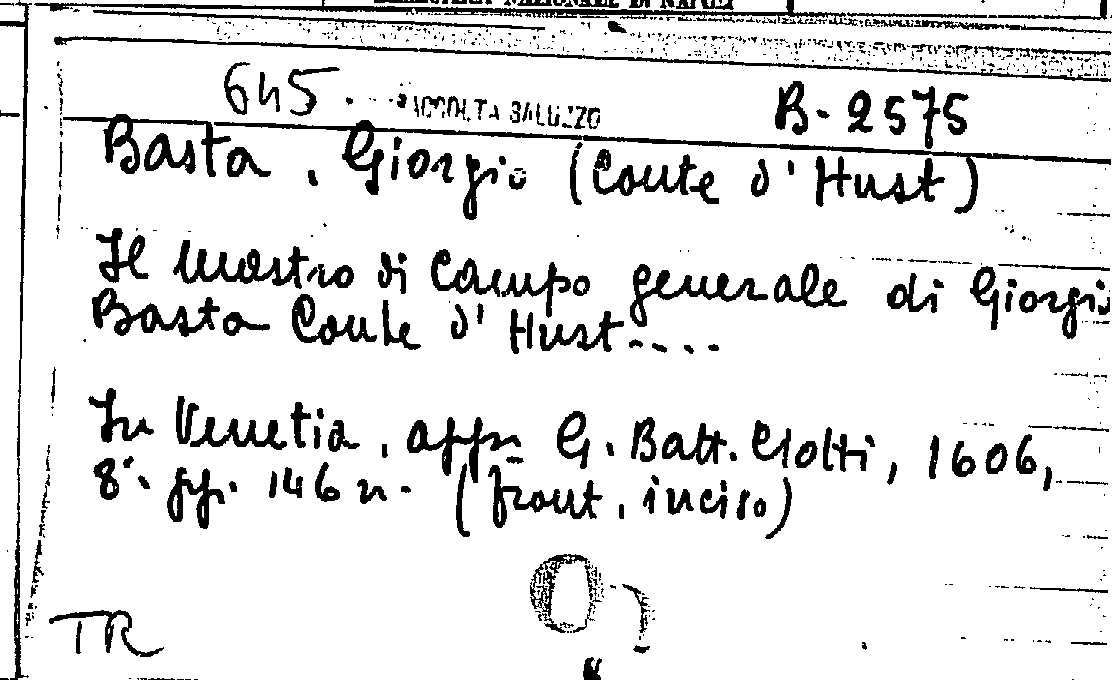 645. RACCOLTA SALUZZO B-2575
Basta, Giorgio (Conte d'Hust)
Il mastro di Campo generale di Giorgio
Basta Conte d'Hust....
In Venetia, appr. G. Batt. Ciotti, 1606,
8°. pp. 146 n. (front. inciso)
TR